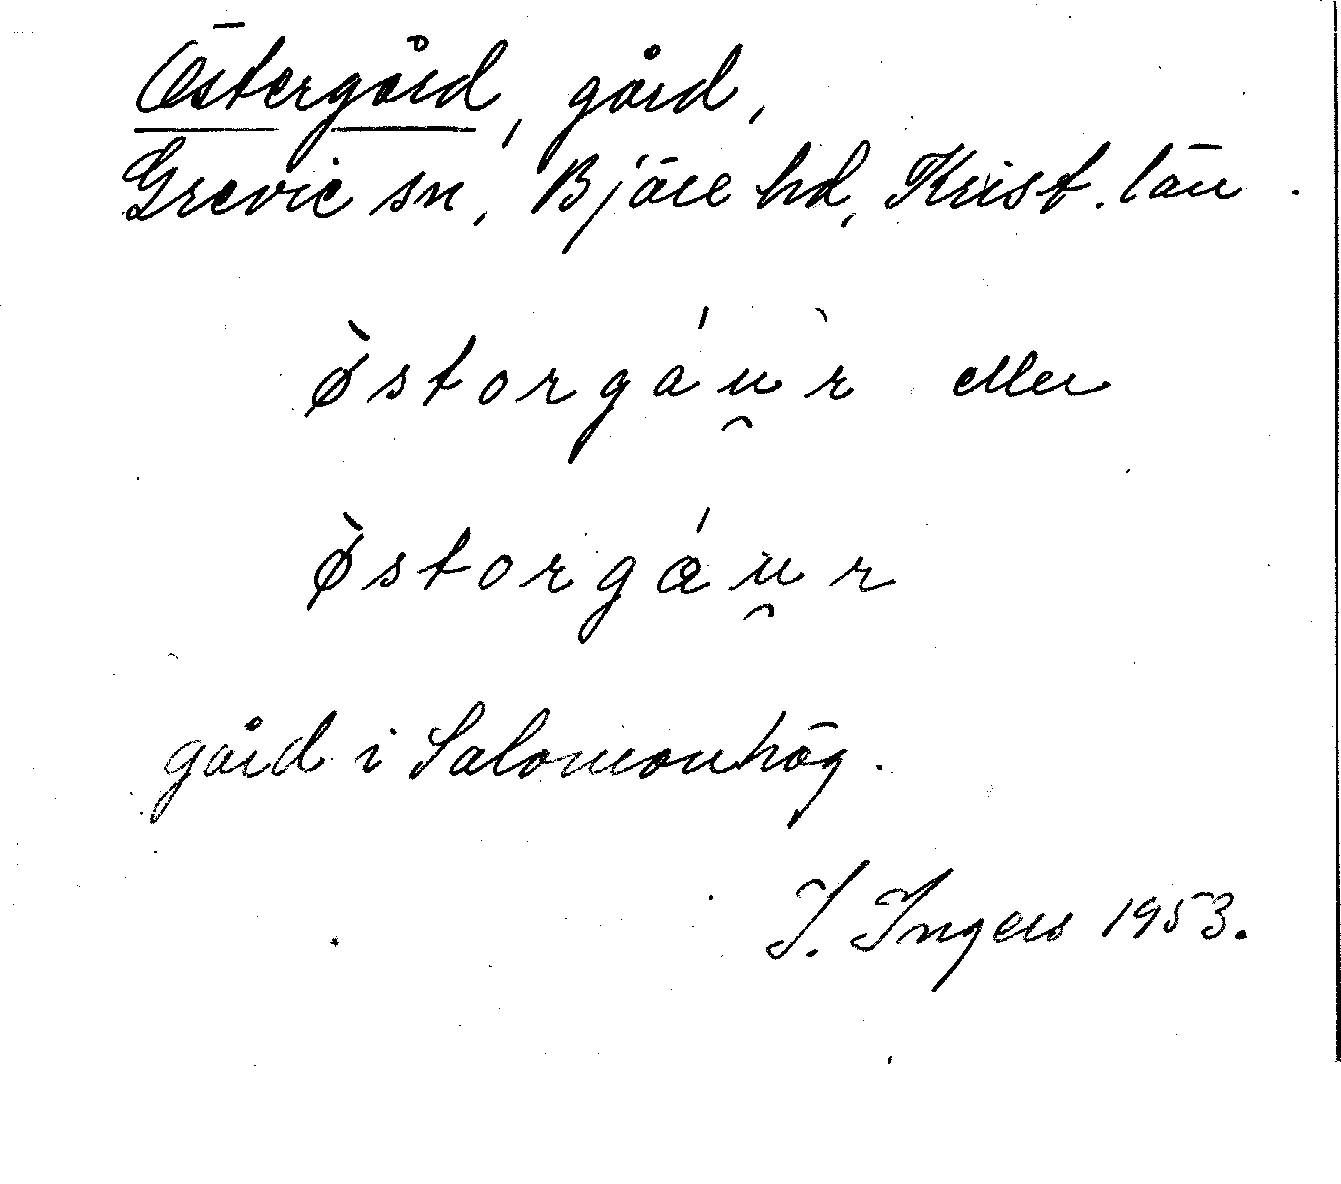 Östergård, gård,
Grevie sn, Bjäre hd, Krist. län.
ø̀storgáu̯r eller
ø̀storgǽu̯r
gård i Salomonhög.
I. Ingers 1953.